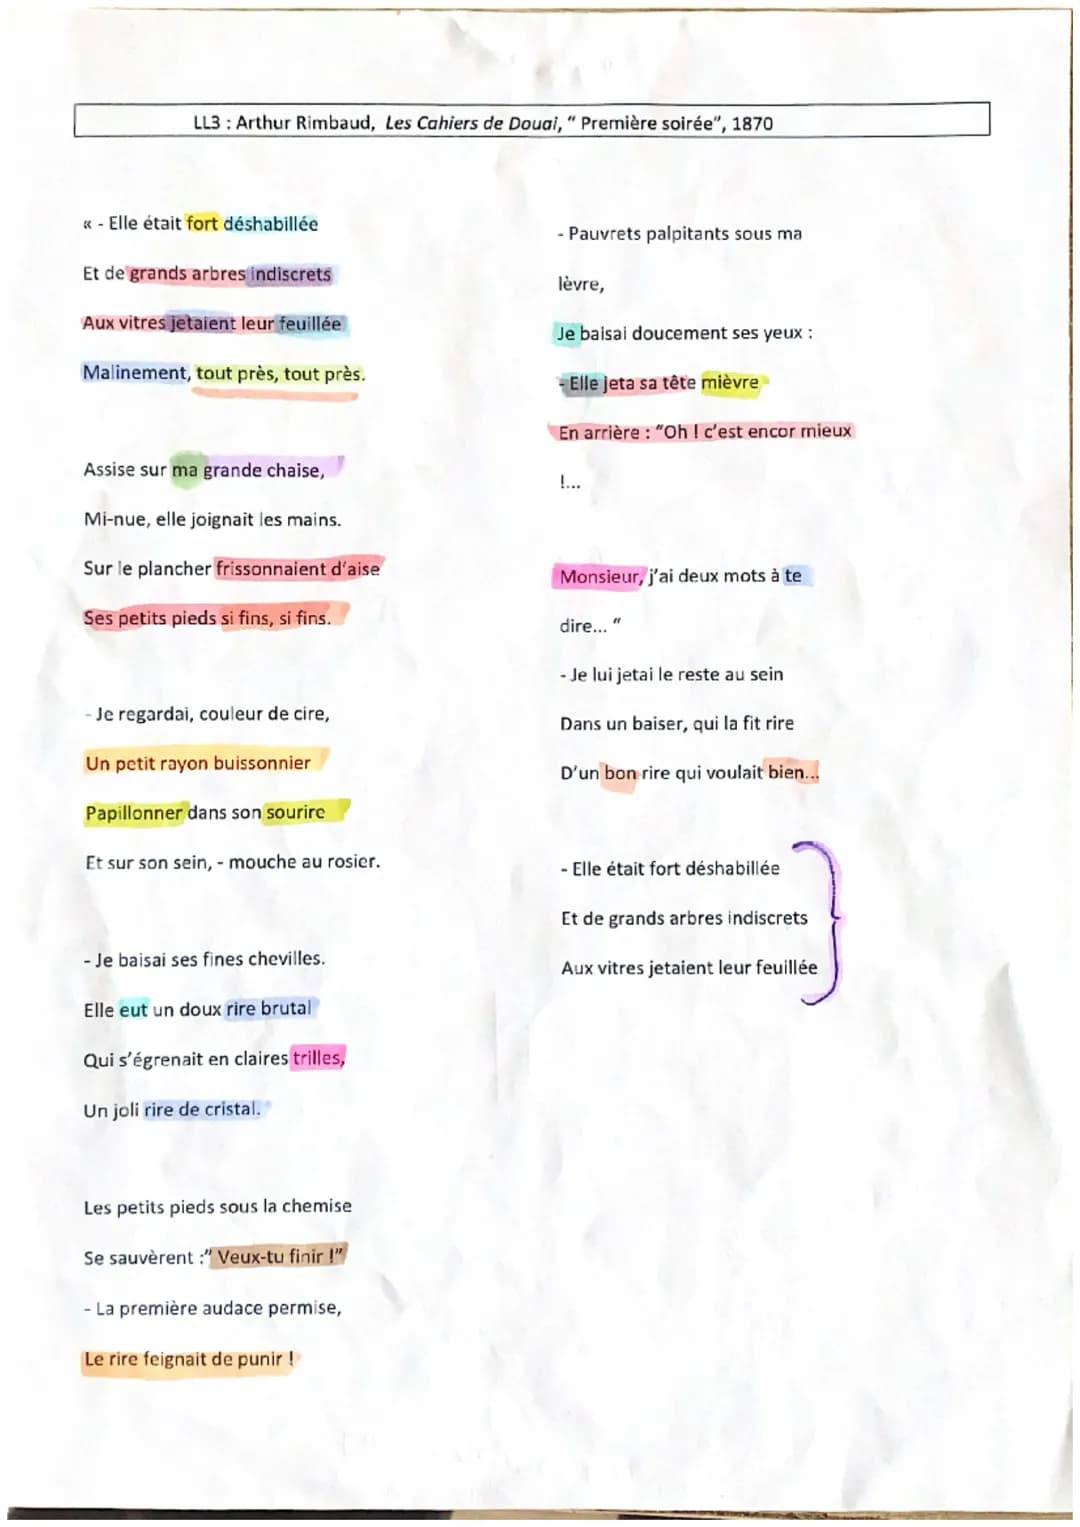 LL3 : Arthur Rimbaud, Les Cahiers de Douai, “ Première soirée”, 1870
« - Elle était fort déshabillée
Et de grands arbres indiscrets
Aux vitres jetaient leur feuillée
Malinement, tout près, tout près.
Assise sur ma grande chaise,
Mi-nue, elle joignait les mains.
Sur le plancher frissonnaient d’aise
Ses petits pieds si fins, si fins.
- Je regardai, couleur de cire,
Un petit rayon buissonnier
Papillonner dans son sourire
Et sur son sein, - mouche au rosier.
- Je baisai ses fines chevilles.
Elle eut un doux rire brutal
Qui s’égrenait en claires trilles,
Un joli rire de cristal.
Les petits pieds sous la chemise
Se sauvèrent :” Veux-tu finir !”
- La première audace permise,
Le rire feignait de punir !
- Pauvrets palpitants sous ma
lèvre,
Je baisai doucement ses yeux :
- Elle jeta sa tête mièvre
En arrière : “Oh ! c’est encor mieux
!...
Monsieur, j’ai deux mots à te
dire... “
- Je lui jetai le reste au sein
Dans un baiser, qui la fit rire
D’un bon rire qui voulait bien...
- Elle était fort déshabillée
Et de grands arbres indiscrets
Aux vitres jetaient leur feuillée